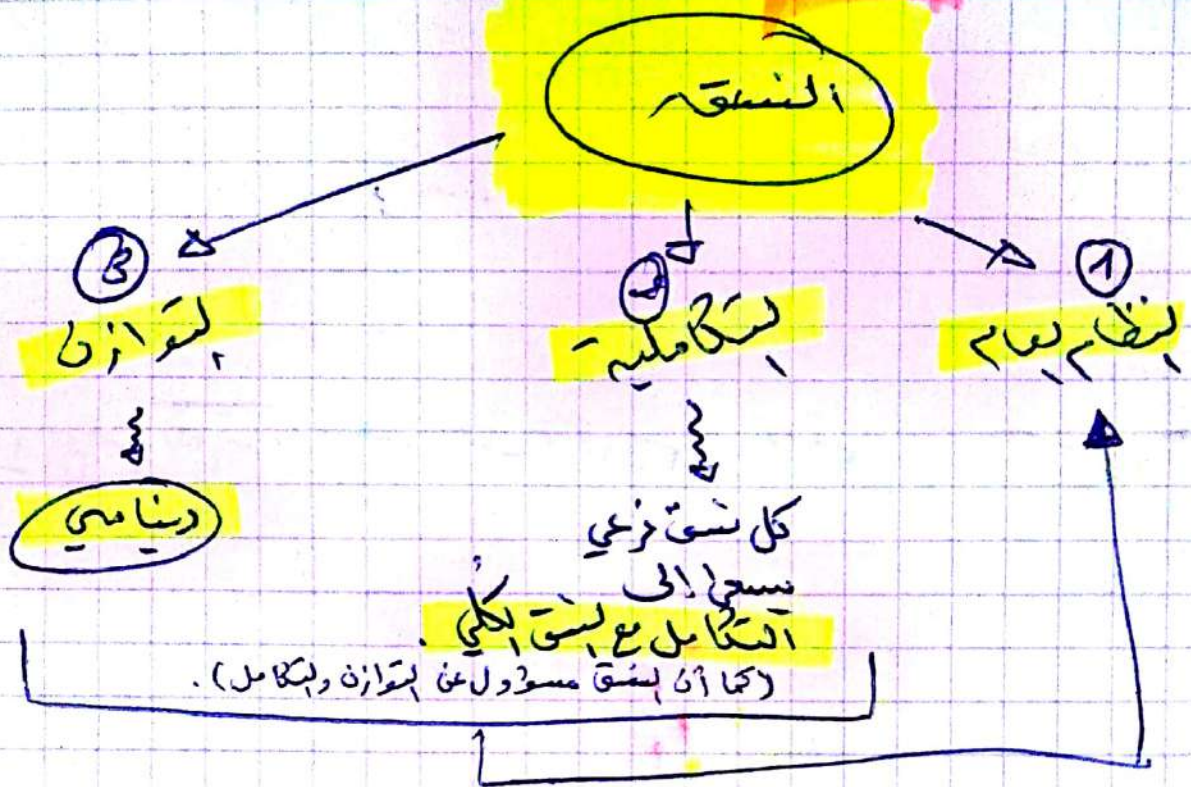 النسق
①
النظام العام
②
التكاملية
③
التوازن
كل نسق فرعي
يسعى إلى
التكامل مع النسق الكلي.
(كما أن النسق مسؤول عن التوازن والتكامل).
دينامي